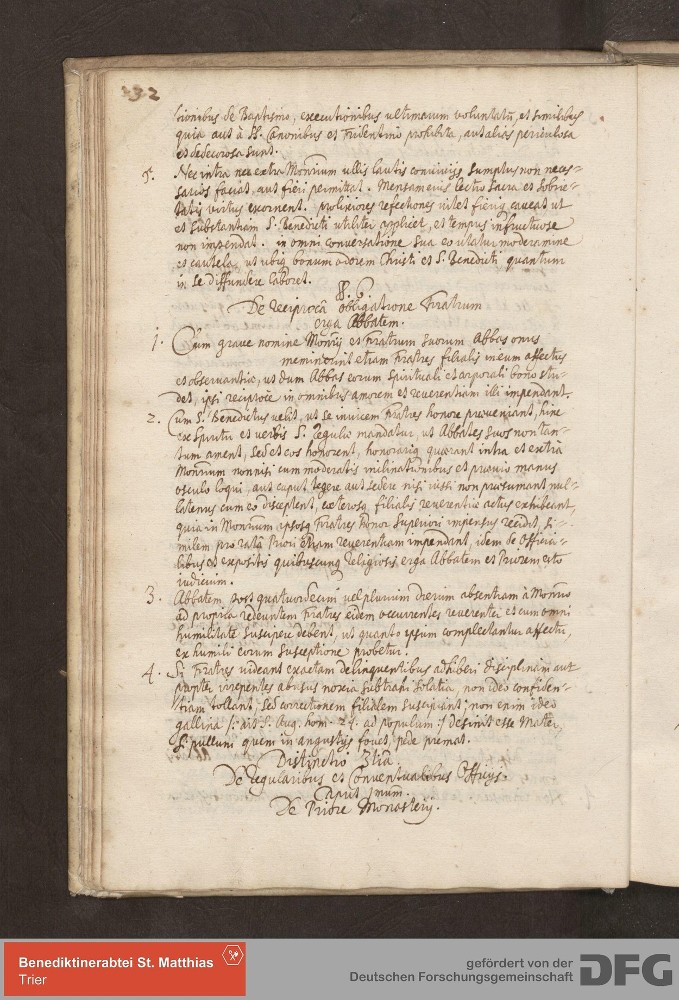 232
tionibus de Baptismo, executionibus ultimarum voluntatũ, et similibus
quia aut à SS. Canonibus et Tridentino prohibita, aut alias periculosa
et dedecorosa sunt.
5. Nec intra nec extra Monrium ullis lautis convivijs sumptus non neces-
sarios faciat, aut fieri permittat. Mensam eius lectio sacra et sobrie-
tatis virtus exornent. prolixiores refectiones vitet fieriq caveat ut
et substantiam S. Benedicti utiliter applicet, et tempus infructuose
non impendat. in omni conversatione sua eo utatur moderamine
et cautela, ut ubiq bonum odorem Christi et S. Benedicti quantum
in se diffundere laboret.
§. 6.
De reciprocâ obligatione Fratrum
erga Abbatem.
1. Cum grave nomine Monrij et Fratrum suorum Abbas onus
meminerint etiam Fratres filialis in eum affectus
et observantiæ, ut dum Abbas eorum spirituali et corporali bono stu-
det, ipsi reciproce in omnibus amorem et reverentiam illi impendant.
2. Cum S. Benedictus velit, ut se invicem Fratres honore præveniant, hinc
ex Spiritu et verbis S. Regulæ mandatur, ut Abbates suos non tan-
tum ament, sed et eos honorent, honorariq quærant intra et extrà
Monrium non nisi cum moderatis inclinationibus et prævio manus
osculo loqui, aut caput tegere aut sedere nisi iussi non præsumant nul-
latenus cum eo disceptent, cæterosq filialis reverentiæ actus exhibeant,
quia in Monrium ipsosq Fratres honor Superiori impensus recidit, si-
milem pro ratâ Priori etiam reverentiam impendant, idem de Officia-
libus et expositis quibuscunq Religiosis, erga Abbatem et Priorem esto
iudicium.
3. Abbatem post quatuordecim vel plurium dierum absentiam à Monrio
ad propria redeuntem Fratres eidem occurrentes reverenter et cum omni
humilitate suscipere debent, ut quanto ipsum complectantur affectu,
ex humili eorum susceptione probetur.
4. Si Fratres videant exactam delinquentibus adhiberi disciplinam aut
propter irrepentes abusus noxia subtrahi solatia, non ideo confiden-
tiam tollant, sed correctionem filialem suscipiant; non enim ideo
gallina /: ait S. Aug. hom. 27. ad populum :/ desinit esse Mater,
si pullum quem in angustijs fovet, pede premat.
Distinctio 3tia.
De Regularibus et Conventualibus Officijs.
Caput 1mum.
De Priore Monasterij.
Benediktinerabtei St. Matthias
Trier
gefördert von der
Deutschen Forschungsgemeinschaft
DFG